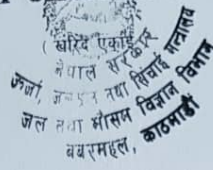 (खरिद एकाई)
नेपाल सरकार
ऊर्जा, जलस्रोत तथा सिंचाई मन्त्रालय
जल तथा मौसम विज्ञान विभाग
बबरमहल, काठमाडौं